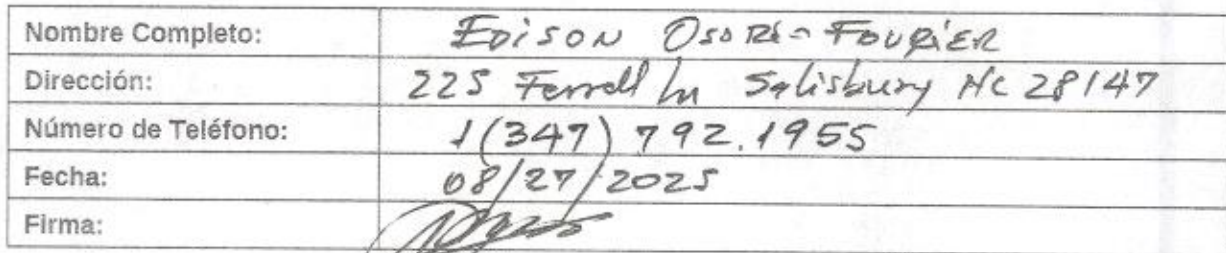 Nombre Completo: Edison Osorio-Fourier
Dirección: 225 Ferrell Ln Salisbury NC 28147
Número de Teléfono: 1(347) 792.1955
Fecha: 08/27/2025
Firma: